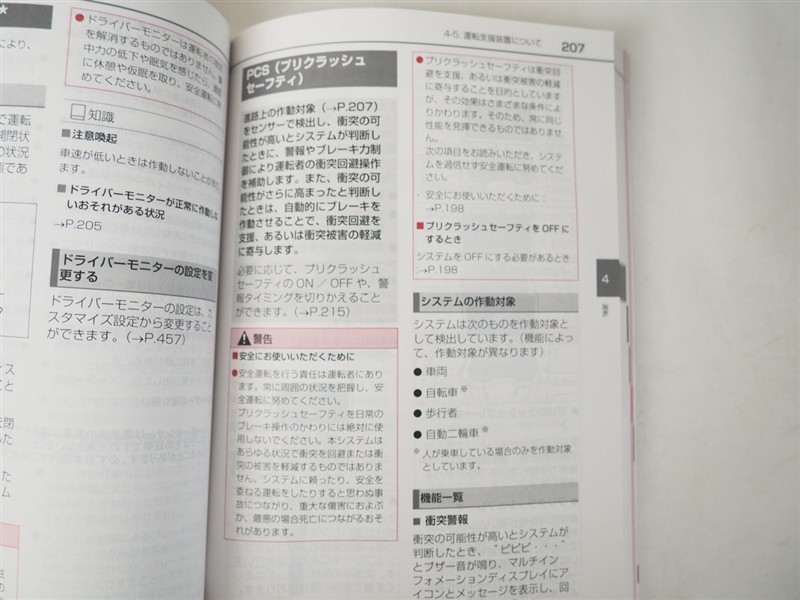 ●ドライバーモニターは運転者の
を解消するものではありません。
中力の低下や眠気を感じたら、
に休憩や仮眠を取り、安全運転に努
めてください。
知識
■注意喚起
車速が低いときは作動しないことがあり
ます。
■ドライバーモニターが正常に作動しな
いおそれがある状況
→P.205
ドライバーモニターの設定を変
更する
ドライバーモニターの設定は、カ
スタマイズ設定から変更すること
ができます。(→P.457)
4-5. 運転支援装置について
207
PCS（プリクラッシュ
セーフティ）
進路上の作動対象（→P.207）
をセンサーで検出し、衝突の可
能性が高いとシステムが判断し
たときに、警報やブレーキ力制
御により運転者の衝突回避操作
を補助します。また、衝突の可
能性がさらに高まったと判断し
たときは、自動的にブレーキを
作動させることで、衝突回避を
支援、あるいは衝突被害の軽減
に寄与します。
必要に応じて、プリクラッシュ
セーフティの ON ／ OFF や、警
報タイミングを切りかえること
ができます。（→P.215）
警告
■安全にお使いいただくために
●安全運転を行う責任は運転者にあり
ます。常に周囲の状況を把握し、安
全運転に努めてください。
プリクラッシュセーフティを日常の
ブレーキ操作のかわりには絶対に使
用しないでください。本システムは
あらゆる状況で衝突を回避または衝
突の被害を軽減するものではありま
せん。システムに頼ったり、安全を
委ねる運転をしたりすると思わぬ事
故につながり、重大な傷害におよぶ
か、最悪の場合死亡につながるおそ
れがあります。
●プリクラッシュセーフティは衝突回
避を支援、あるいは衝突被害の軽減
に寄与することを目的としています
が、その効果はさまざまな条件によ
りかわります。そのため、常に同じ
性能を発揮できるものではありませ
ん。
次の項目をお読みいただき、システ
ムを過信せず安全運転に努めてくだ
さい。
・安全にお使いいただくために：
→P.198
■プリクラッシュセーフティを OFF に
するとき
システムを OFF にする必要があるとき
→P.198
4
運転
システムの作動対象
システムは次のものを作動対象と
して検出しています。（機能によっ
て、作動対象が異なります）
●車両
●自転車※
●歩行者
●自動二輪車※
※人が乗車している場合のみを作動対象
としています。
機能一覧
■ 衝突警報
衝突の可能性が高いとシステムが
判断したとき、“ピピピ・・・”
とブザー音が鳴り、マルチイン
フォメーションディスプレイにア
イコンとメッセージを表示し、回